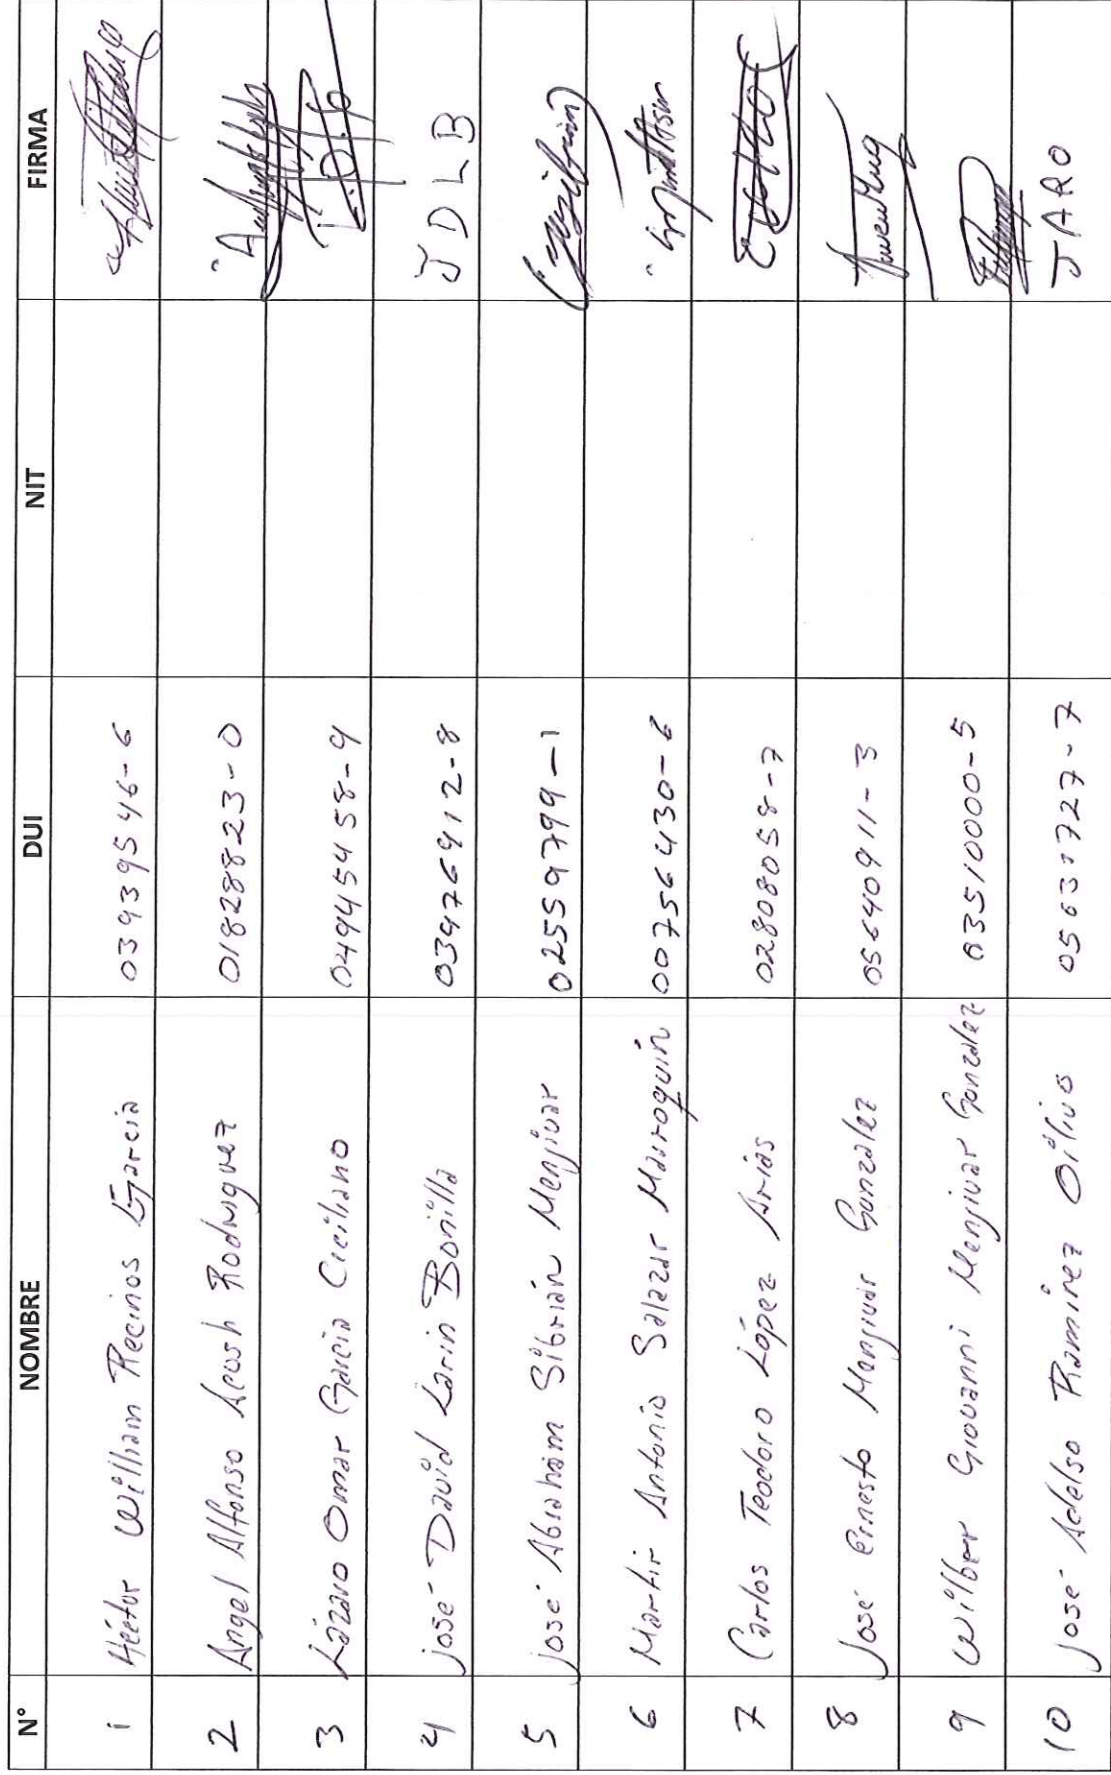 N° NOMBRE DUI NIT FIRMA
1 Héctor William Recinos García 03939546-6
2 Angel Alfonso Rodriguez 01828823-0
3 Lázaro Omar García Ciciliano 04945458-9
4 José David Larin Bonilla 03976912-8 JDLB
5 José Abraham Sibrián Menjivar 02559799-1
6 Martir Antonio Salazar Marroquín 00756430-6
7 Carlos Teodoro López Arias 02808058-7
8 José Ernesto Menjivar Gonzalez 05640911-3
9 Wilber Giovanni Menjivar Gonzalez 03510000-5
10 José Adelso Ramirez JARO